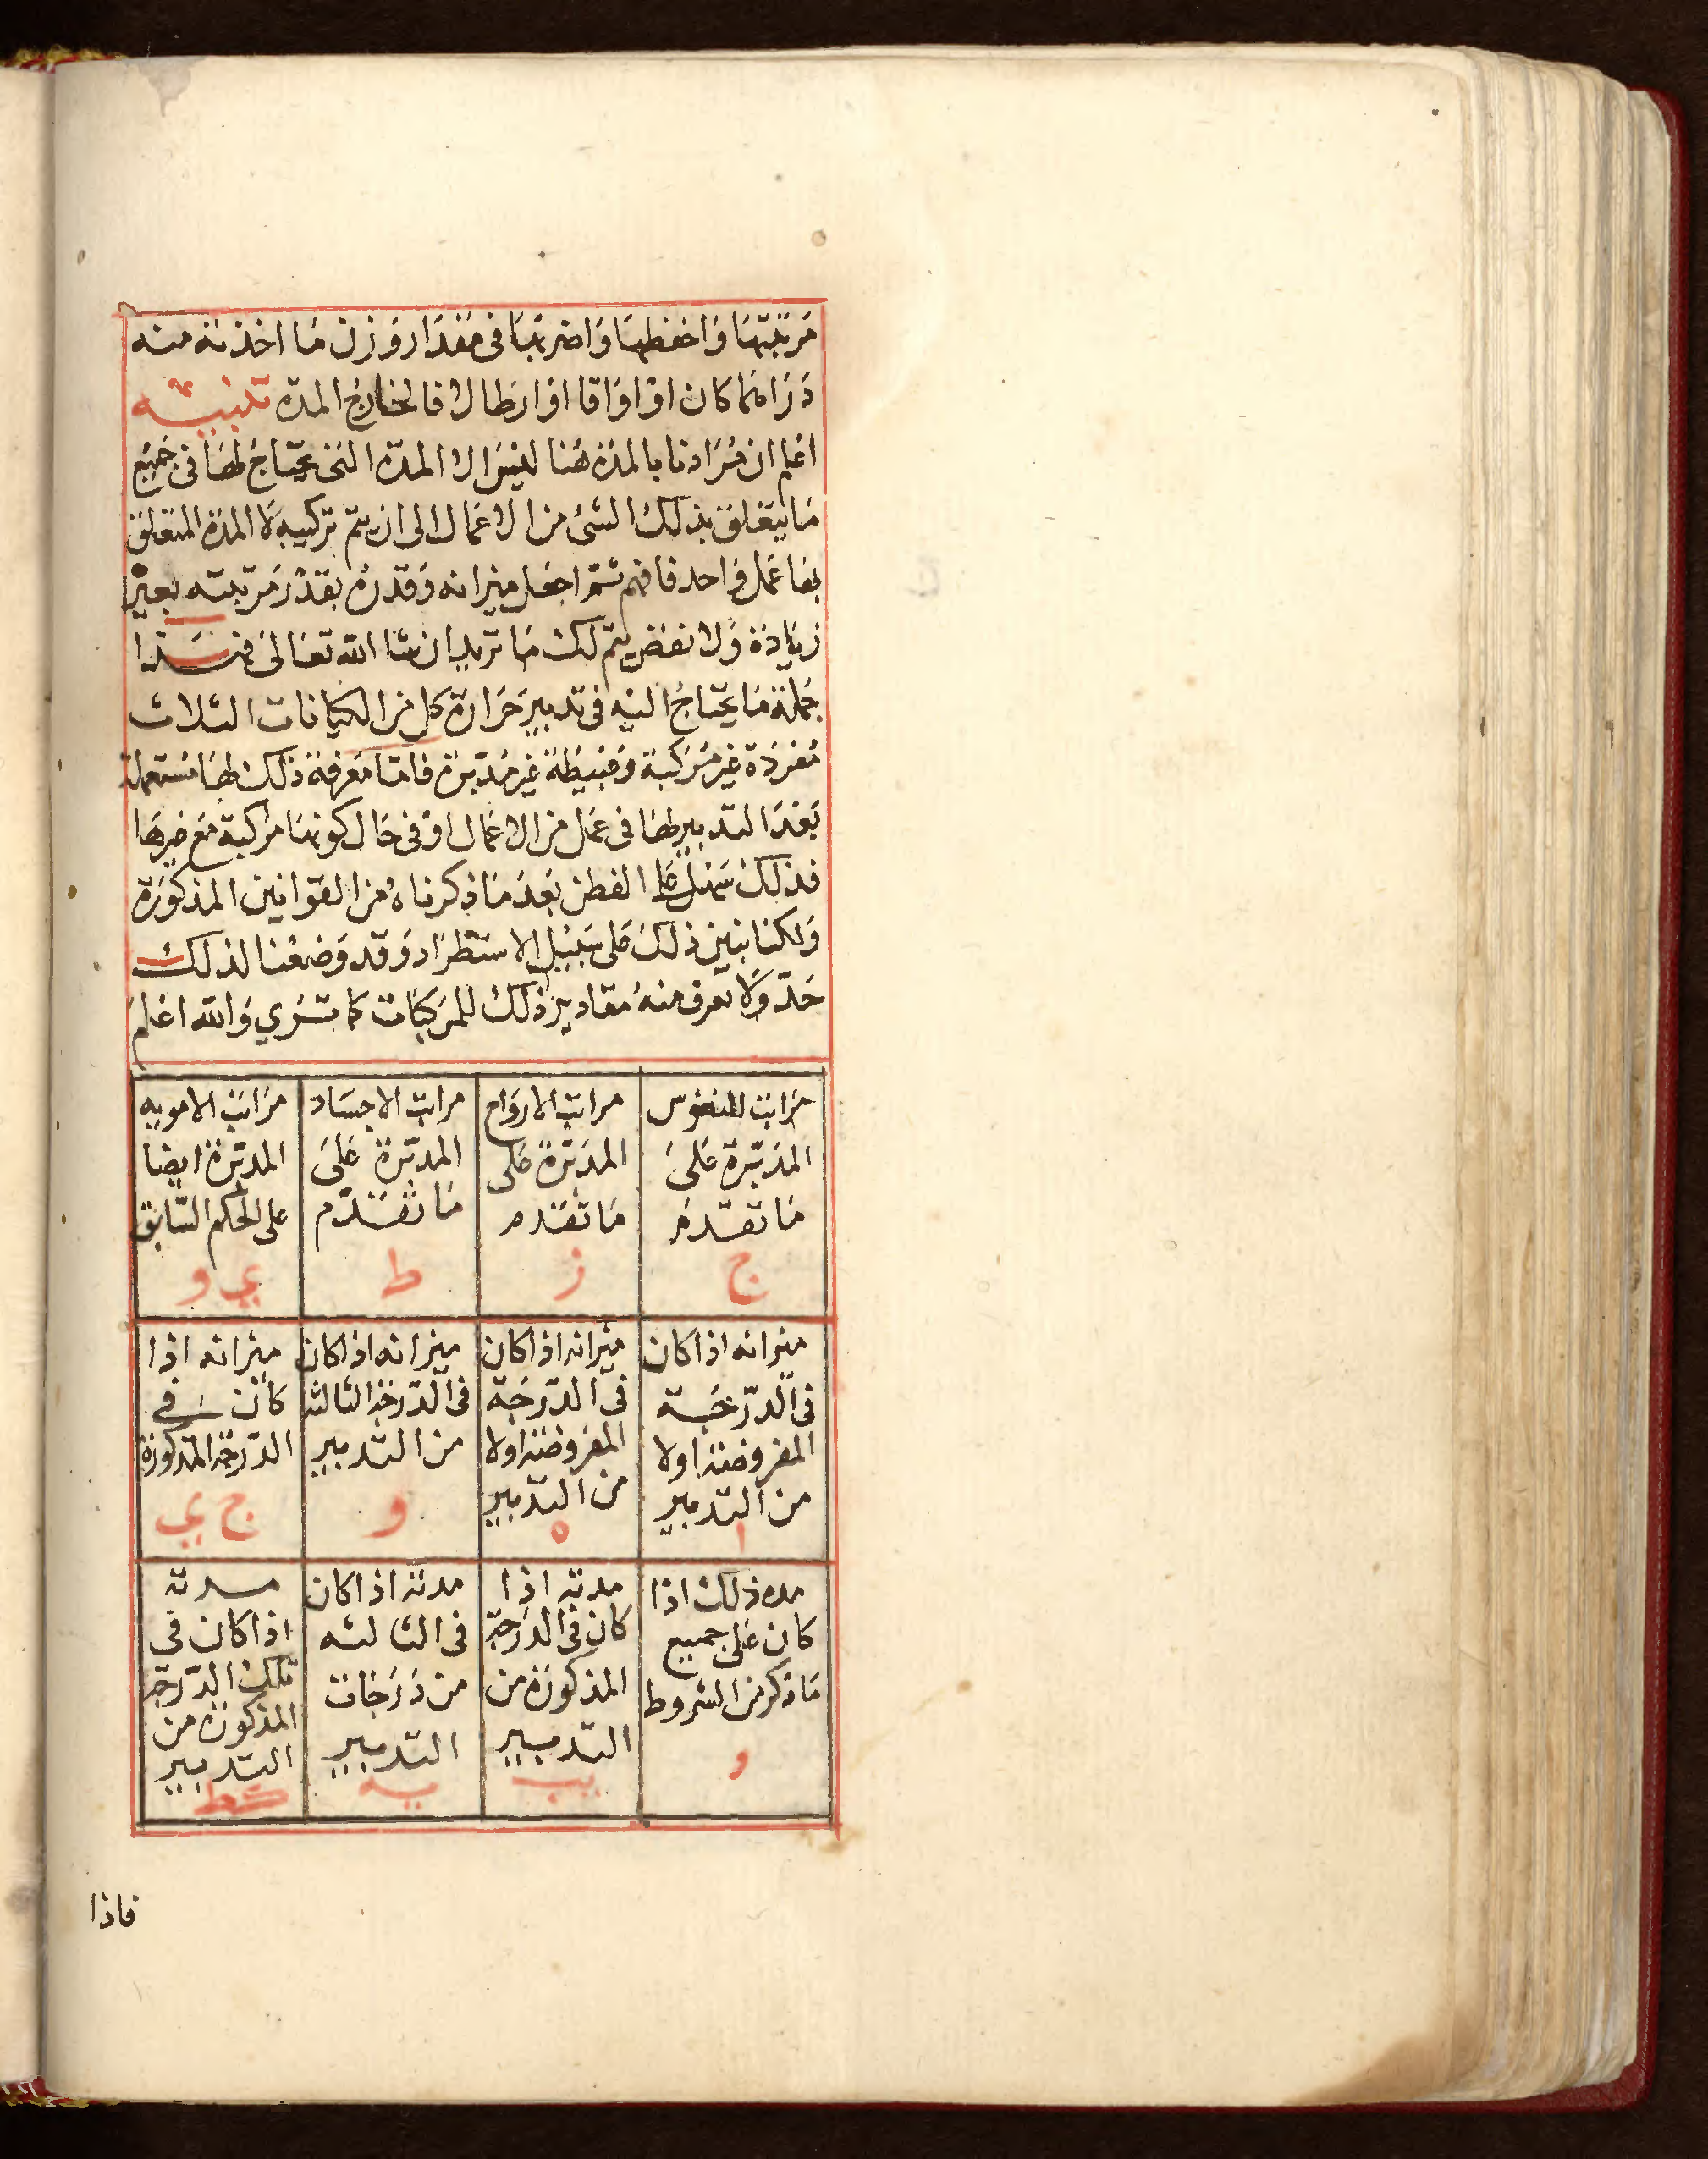 مرتبتها واحفظها واضربها فى مقدار وزن ما اخذته منه
دراهما كان او اواقا او ارطالا فالخارج المدة تنبيه
اعلم ان مرادنا بالمدة هنا ليس الا المدة التى يحتاج لها فى جميع
ما يتعلق بذلك الشئ من الاعمال الى ان يتم تركيبه لا المدة المتعلق
بها عمل واحد فافهم ثم اجعل ميزانه وقدره بقدر مرتبته بغير
زيادة ولا نقض يتم لك ما تريد ان شا الله تعالى فهذا
جملة ما يحتاج اليه فى تدبير حرارة كل من الكيانات الثلاث
مفردة غير مركبة وبسيطة غير مدبرة فاما معرفة ذلك لها مستعملة
بعد التدبير لها فى عمل من الاعمال او فى حال كونها مركبة مع غيرها
فذلك سهل على الفطن بعد ما ذكرناه من القوانين المذكورة
ولكنا نبين ذلك على سبيل الاستطراد وقد وضعنا لذلك
جدولا تعرف منه مقادير ذلك للمركبات كما ترى والله اعلم
مراتب النفوس
المدبرة على
ما تقدم
ج
مراتب الارواح
المدبرة على
ما تقدم
ز
مراتب الاجساد
المدبرة على
ما تقدم
ط
مراتب الامويه
المدبرة ايضا
على الحكم السابق
ي و
ميزانه اذا كان
فى الدرجة
المفروضة اولا
من التدبير
ا
ميزانه اذا كان
فى الدرجة
المفروضة اولا
من التدبير
ه
ميزانه اذا كان
فى الدرجة الثالثة
من التدبير
و
ميزانه اذا
كان فى
الدرجة المذكورة
ج ي
مده ذلك اذا
كان على جميع
ما ذكر من الشروط
و
مدته اذا
كان فى الدرجة
المذكورة من
التدبير
يب
مدته اذا كان
فى الثالثه
من درجات
التدبير
يه
مدته
اذا كان فى
تلك الدرجة
المذكورة من
التدبير
كط
فاذا